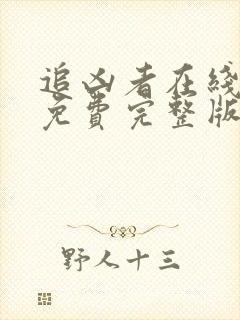 追凶者在线
免费完整版
野人十三